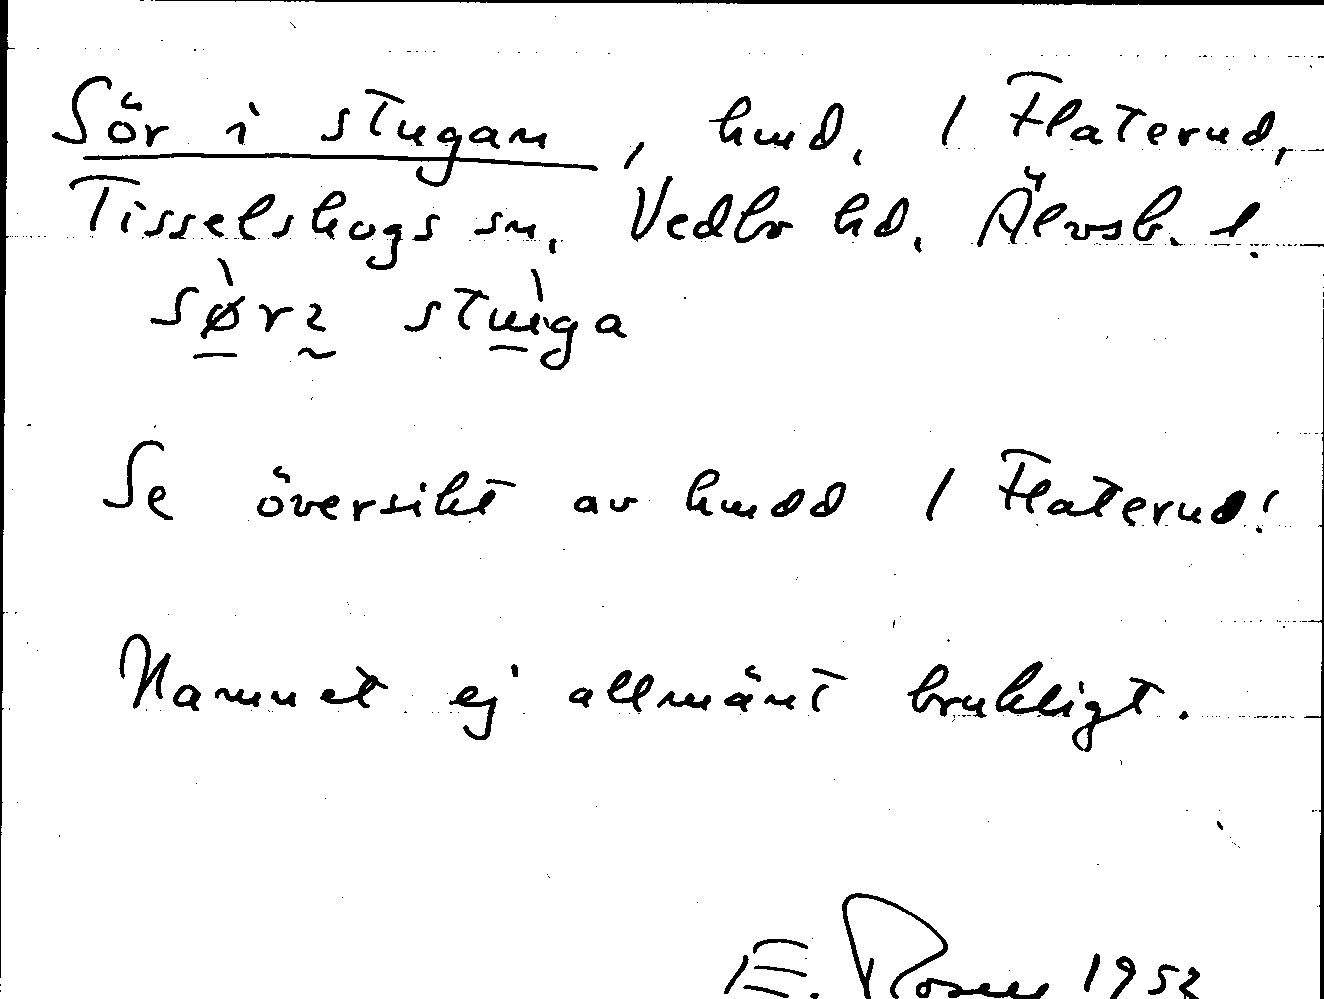 Sör i stugan, hmd, 1 Flaterud,
Tisselskogs sn, Vedbo hd, Älvsb. l.
Se översikt av hmdd 1 Flaterud!
Namnet ej allmänt brukligt.
E. Rosén 1952